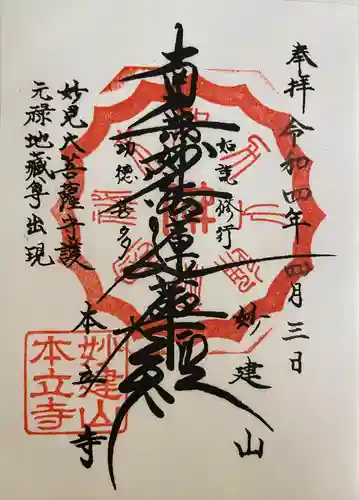 奉拝 令和四年 四月三日
如説修行
妙建山
南無妙法蓮華経
功徳甚多
本立寺
妙見大菩薩守護
元禄地蔵尊出現
妙建山
本立寺